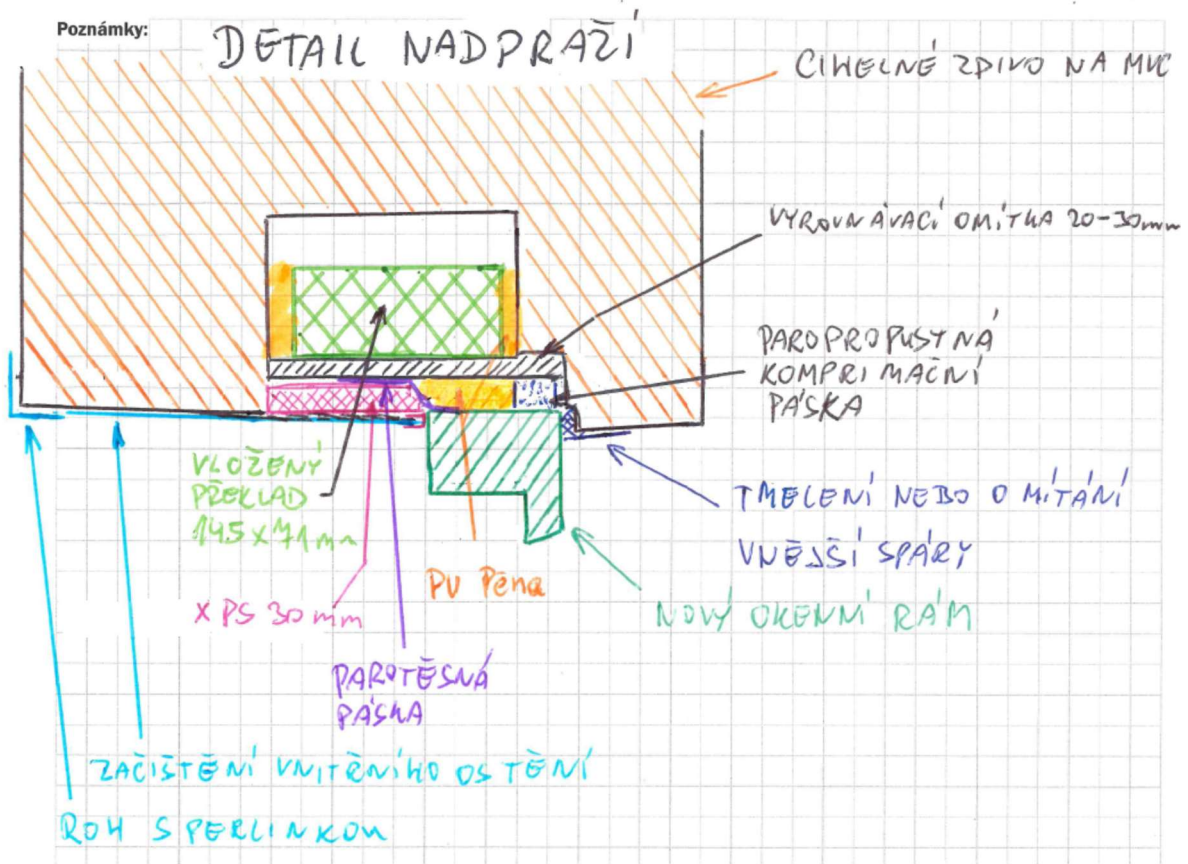 Poznámky:
DETAIL NADPRAŽÍ
CIHELNÉ ZDIVO NA MVC
VYROVNÁVACÍ OMÍTKA 20-30mm
PAROPROPUSTNÁ
KOMPRIMAČNÍ
PÁSKA
VLOŽENÝ
PŘEKLAD
145x71mm
TMELENÍ NEBO OMÍTÁNÍ
VNĚJŠÍ SPÁRY
PU Pěna
XPS 30mm
NOVÝ OKENNÍ RÁM
PAROTĚSNÁ
PÁSKA
ZAČIŠTĚNÍ VNITŘNÍHO OSTĚNÍ
ROH S PERLINKOU